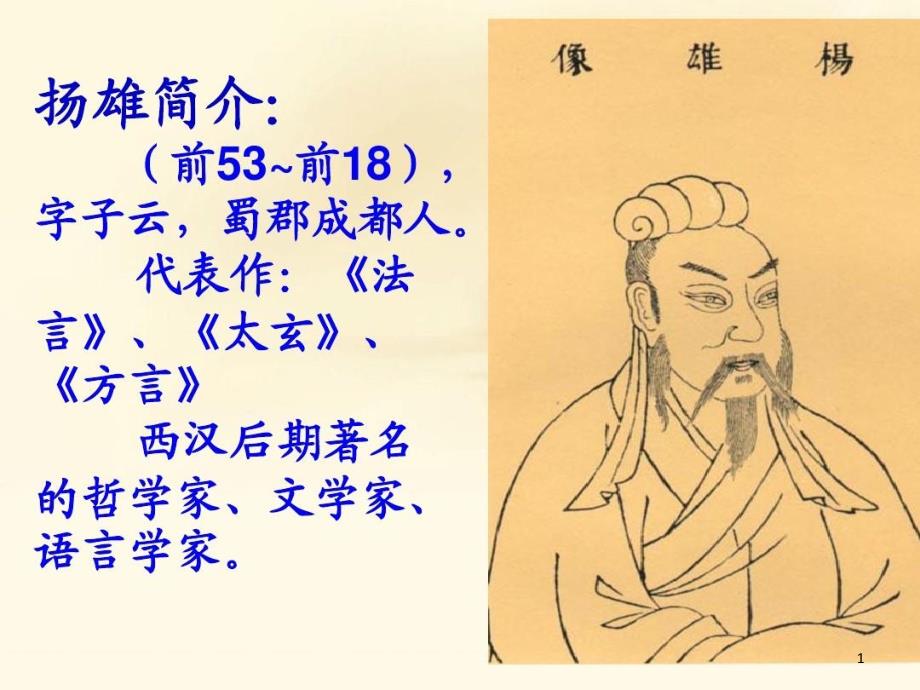 扬雄简介：
（前53~前18），
字子云，蜀郡成都人。
代表作：《法
言》、《太玄》、
《方言》
西汉后期著名
的哲学家、文学家、
语言学家。
像 雄 楊
1